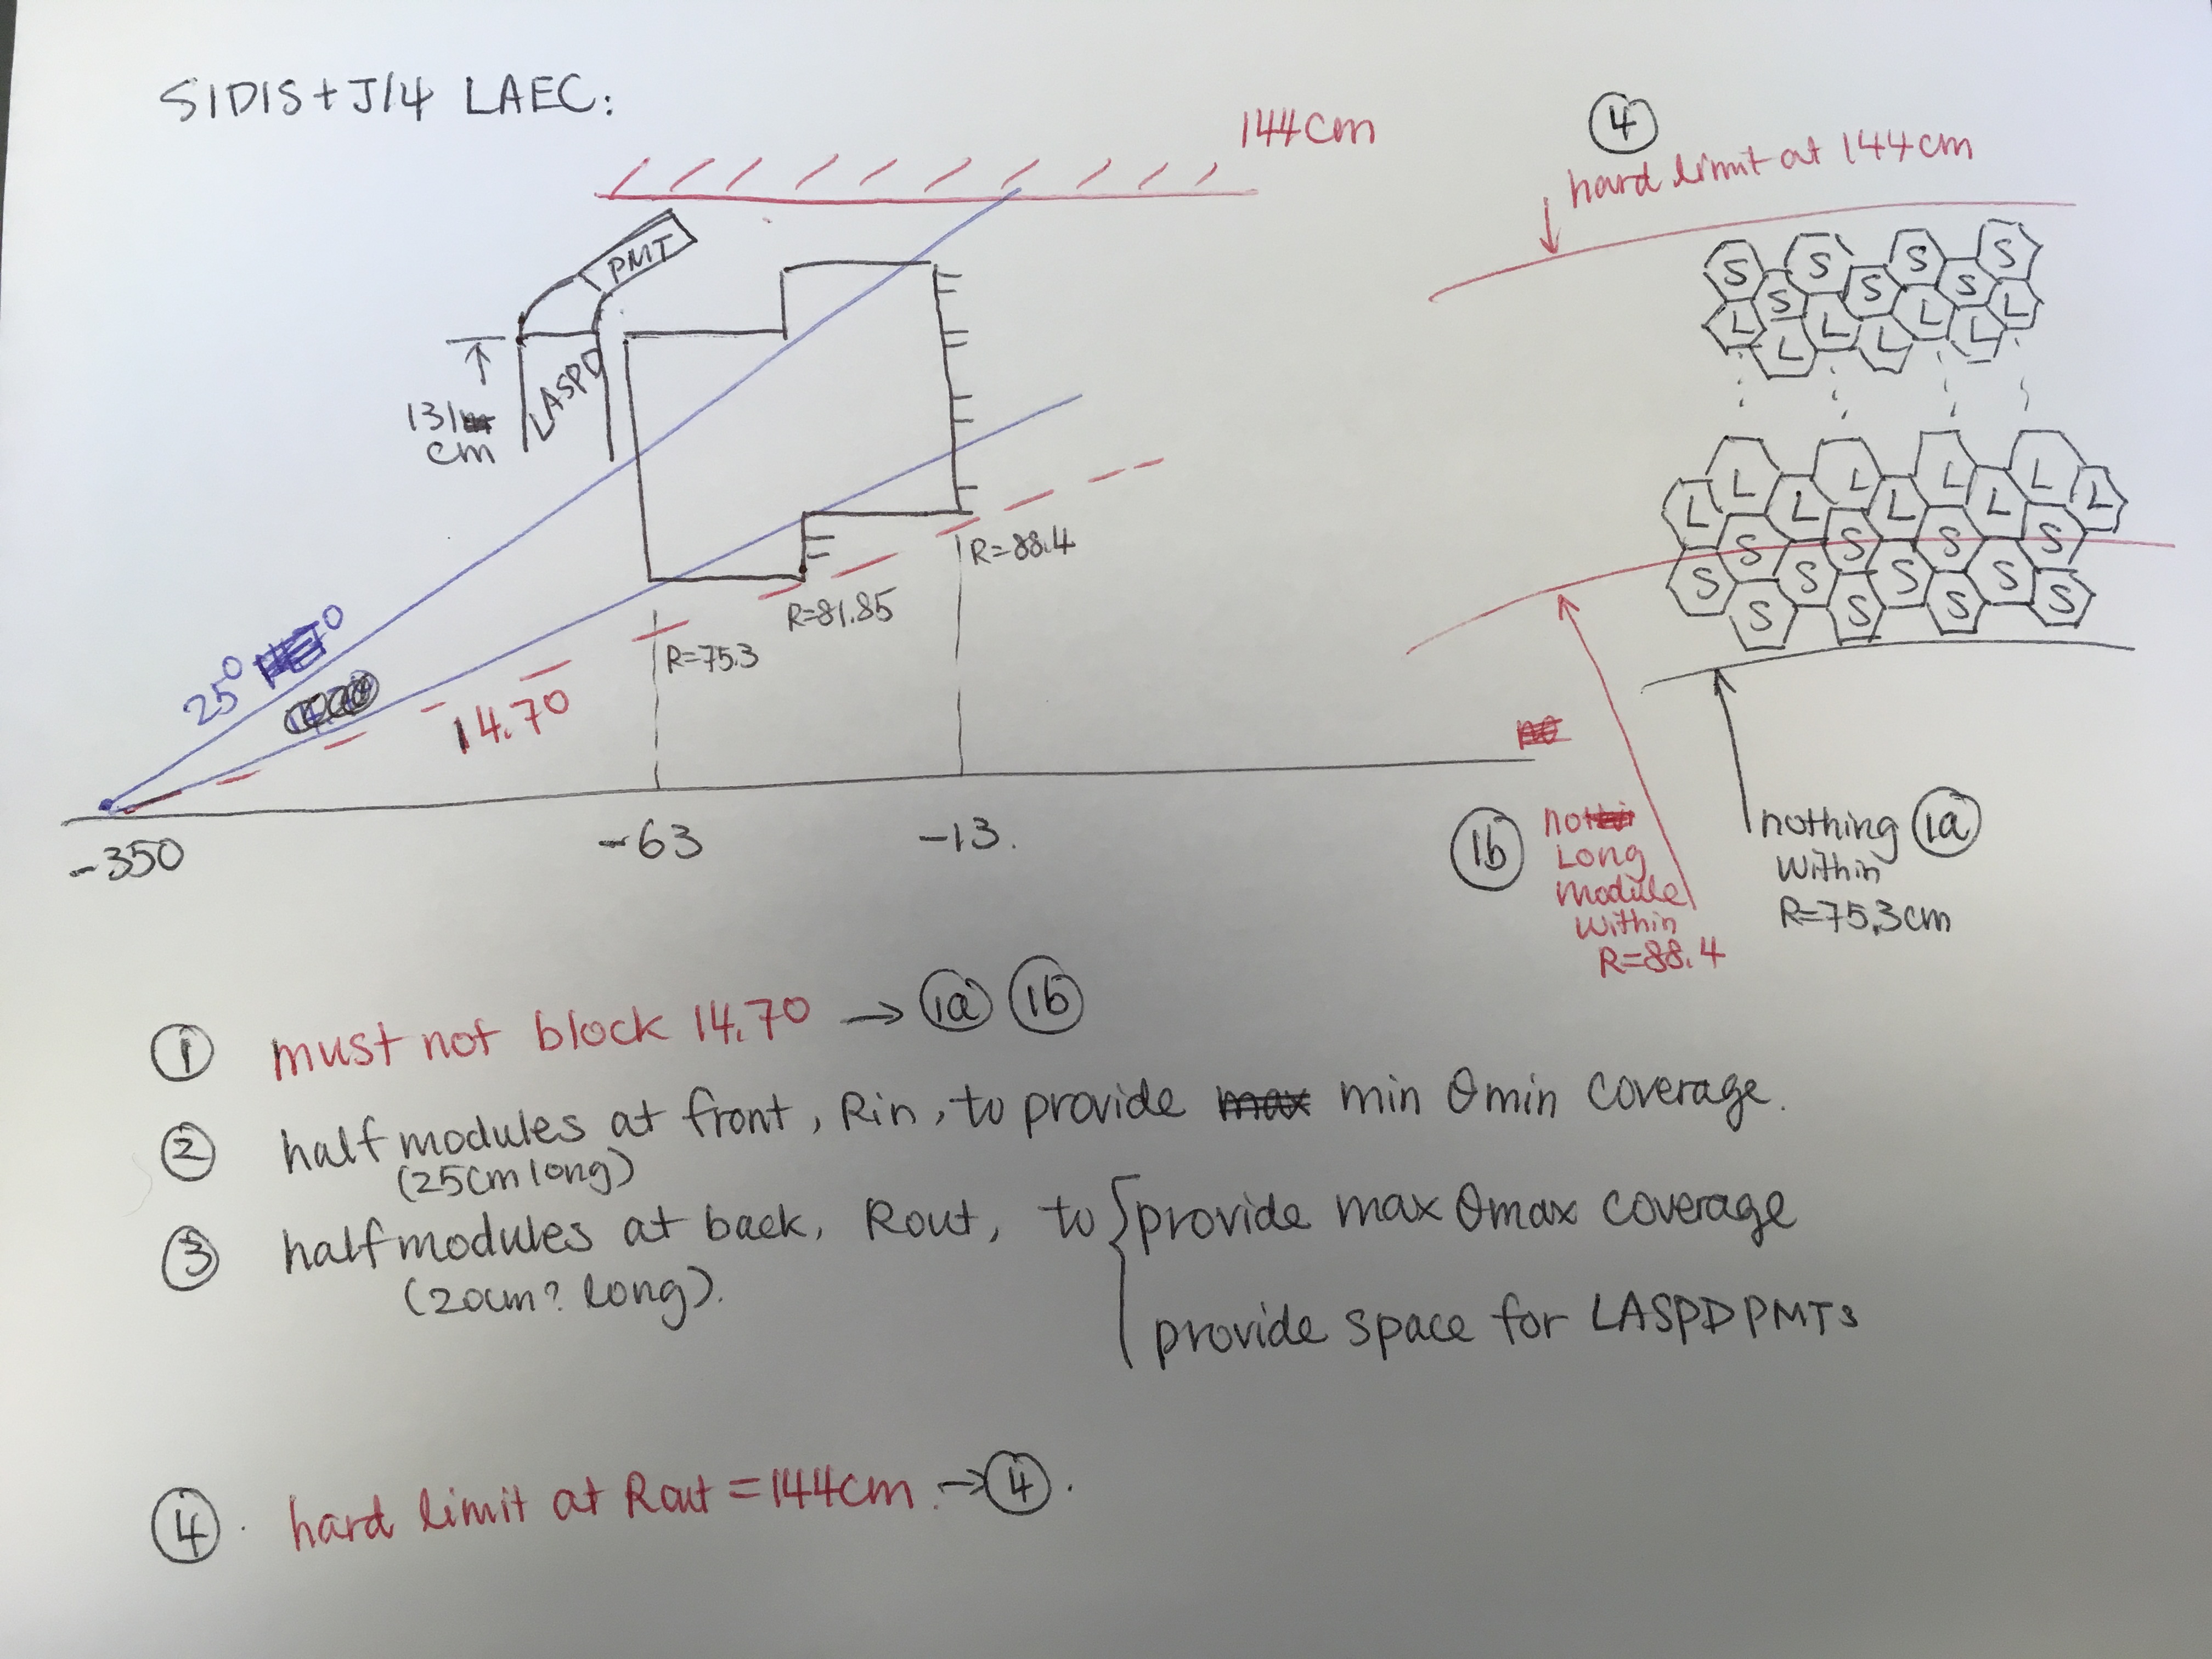 SIDIS+J/ψ LAEC:
144cm
④
hard limit at 144cm
PMT
LASPD
131
cm
S S S S
S S S
L L L
L L L
L L L L
L L L L L
S S S S
S S S S S
S S S
R=88.4
R=81.85
R=75.3
25°
14.70
-350
-63
-13.
1b
Long
module
within
R=88.4
nothing 1a
within
R=75.3cm
① must not block 14.70 → 1a 1b
② half modules at front, Rin, to provide min θmin coverage.
(25cm long)
③ half modules at back, Rout, to { provide max θmax coverage
(20cm? long).
provide space for LASPD PMTs
④. hard limit at Rout = 144cm. → ④.